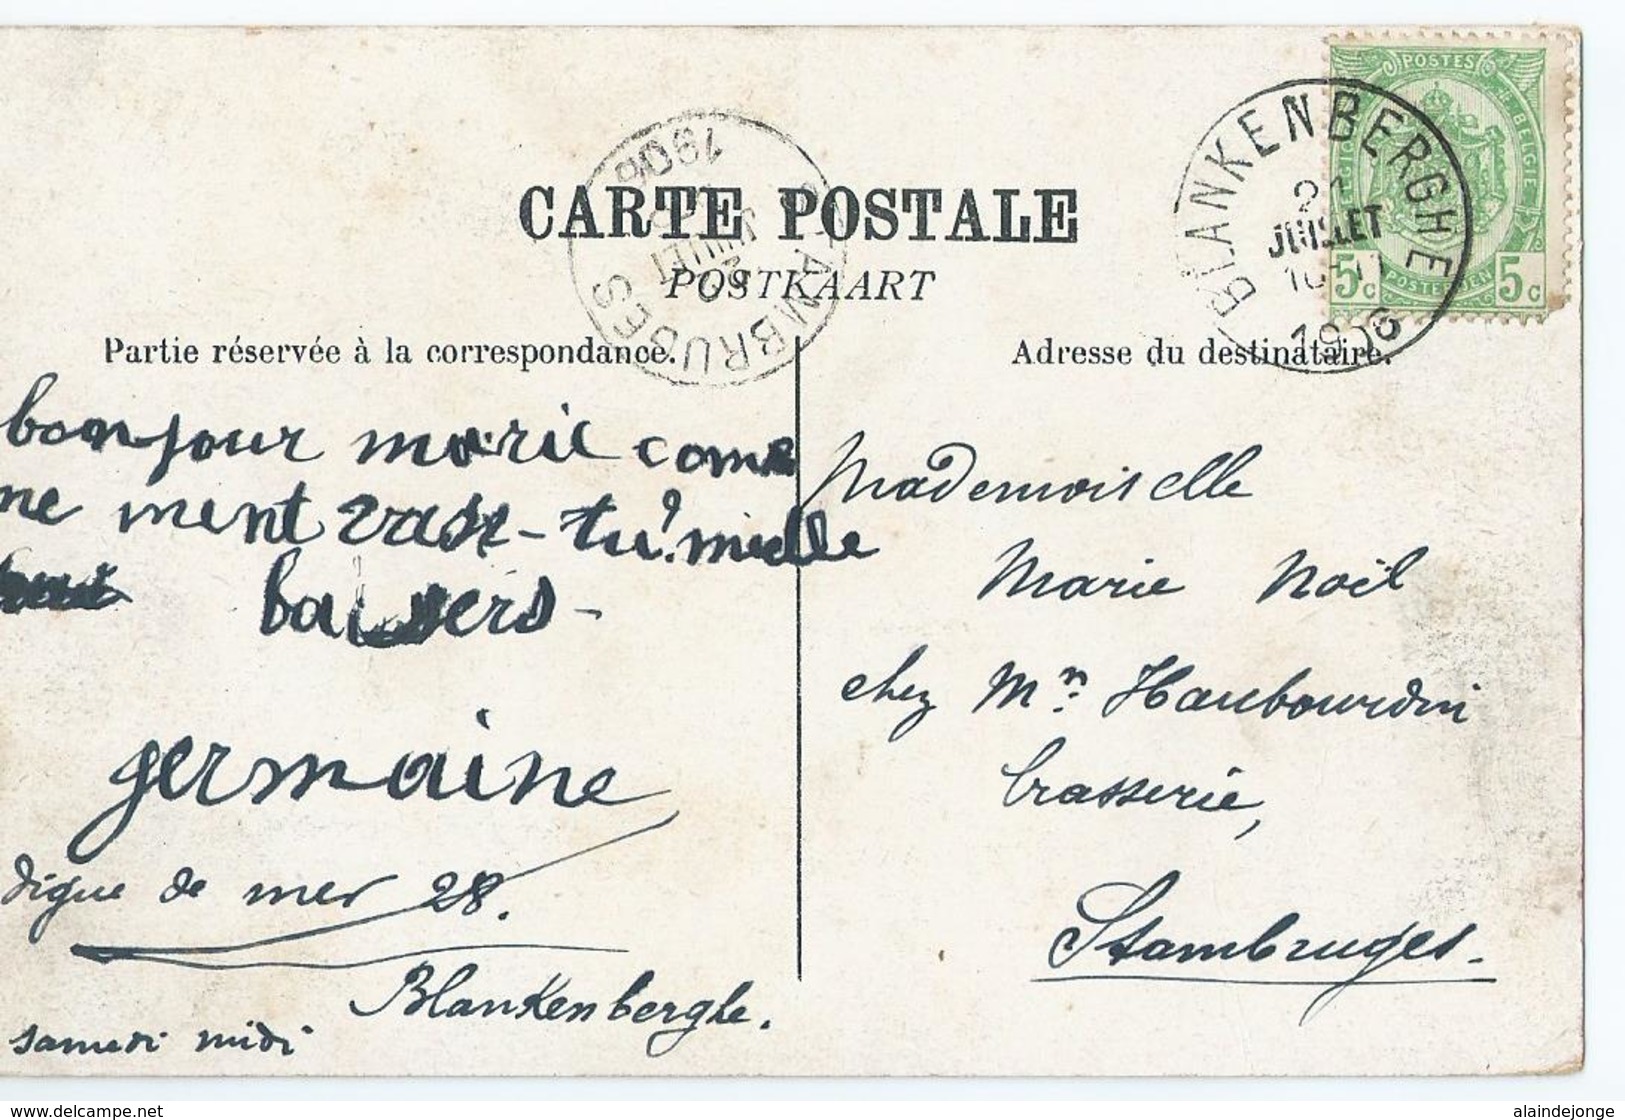 CARTE POSTALE
POSTKAART
Partie réservée à la correspondance.
Adresse du destinataire.
STAMBRUGES
JUILLET
1906
BLANKENBERGHE
JUILLET
1906
POSTES
5c POSTERIJEN 5c
bonjour marie come
ne ment vas-tu? mille
baisers-
germaine
digue de mer 28.
Blankenberghe.
samedi midi
Mademoiselle
Marie Noël
chez Mr. Haubourdin
brasserie,
Stambruges.
www.delcampe.net
alaindejonge